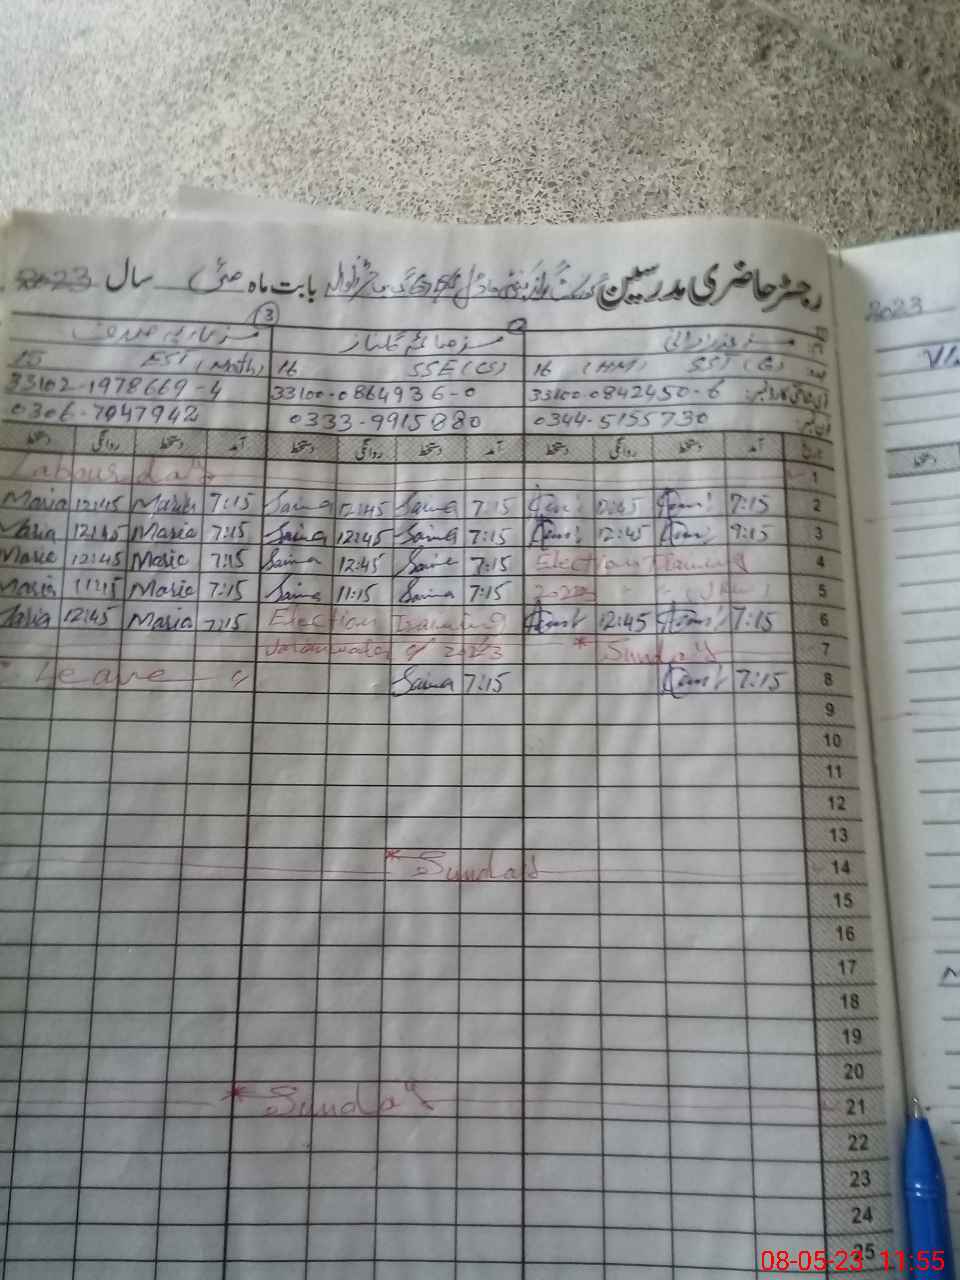 رجسٹر حاضری مدرسین گورنمنٹ گرلز بابت ماہ مئی سال 2023
2023
3
مسز صائمہ گلناز
EST (Math) 16 SSE (CS) 16 (HM) SST (G)
33102-1978669-4 33100-0864936-0 33100-0842450-6
0306-7047942 0333-9915880 0344-5155730
دستخط روانگی دستخط آمد دستخط روانگی دستخط آمد دستخط روانگی دستخط آمد
Labour day 1
Maria 12:45 Maria 7:15 Saima 12:45 Saima 7:15 12:45 7:15 2
Maria 12:45 Maria 7:15 Saima 12:45 Saima 7:15 12:45 7:15 3
Maria 12:45 Maria 7:15 Saima 12:45 Saima 7:15 Election Training 4
Maria 11:15 Maria 7:15 Saima 11:15 Saima 7:15 2023 5
Maria 12:45 Maria 7:15 Election Training 12:45 7:15 6
2023 * Sunday 7
Leave Saima 7:15 7:15 8
9
10
11
12
13
* Sunday 14
15
16
17
18
19
20
* Sunday 21
22
23
24
25
08-05-23 11:55